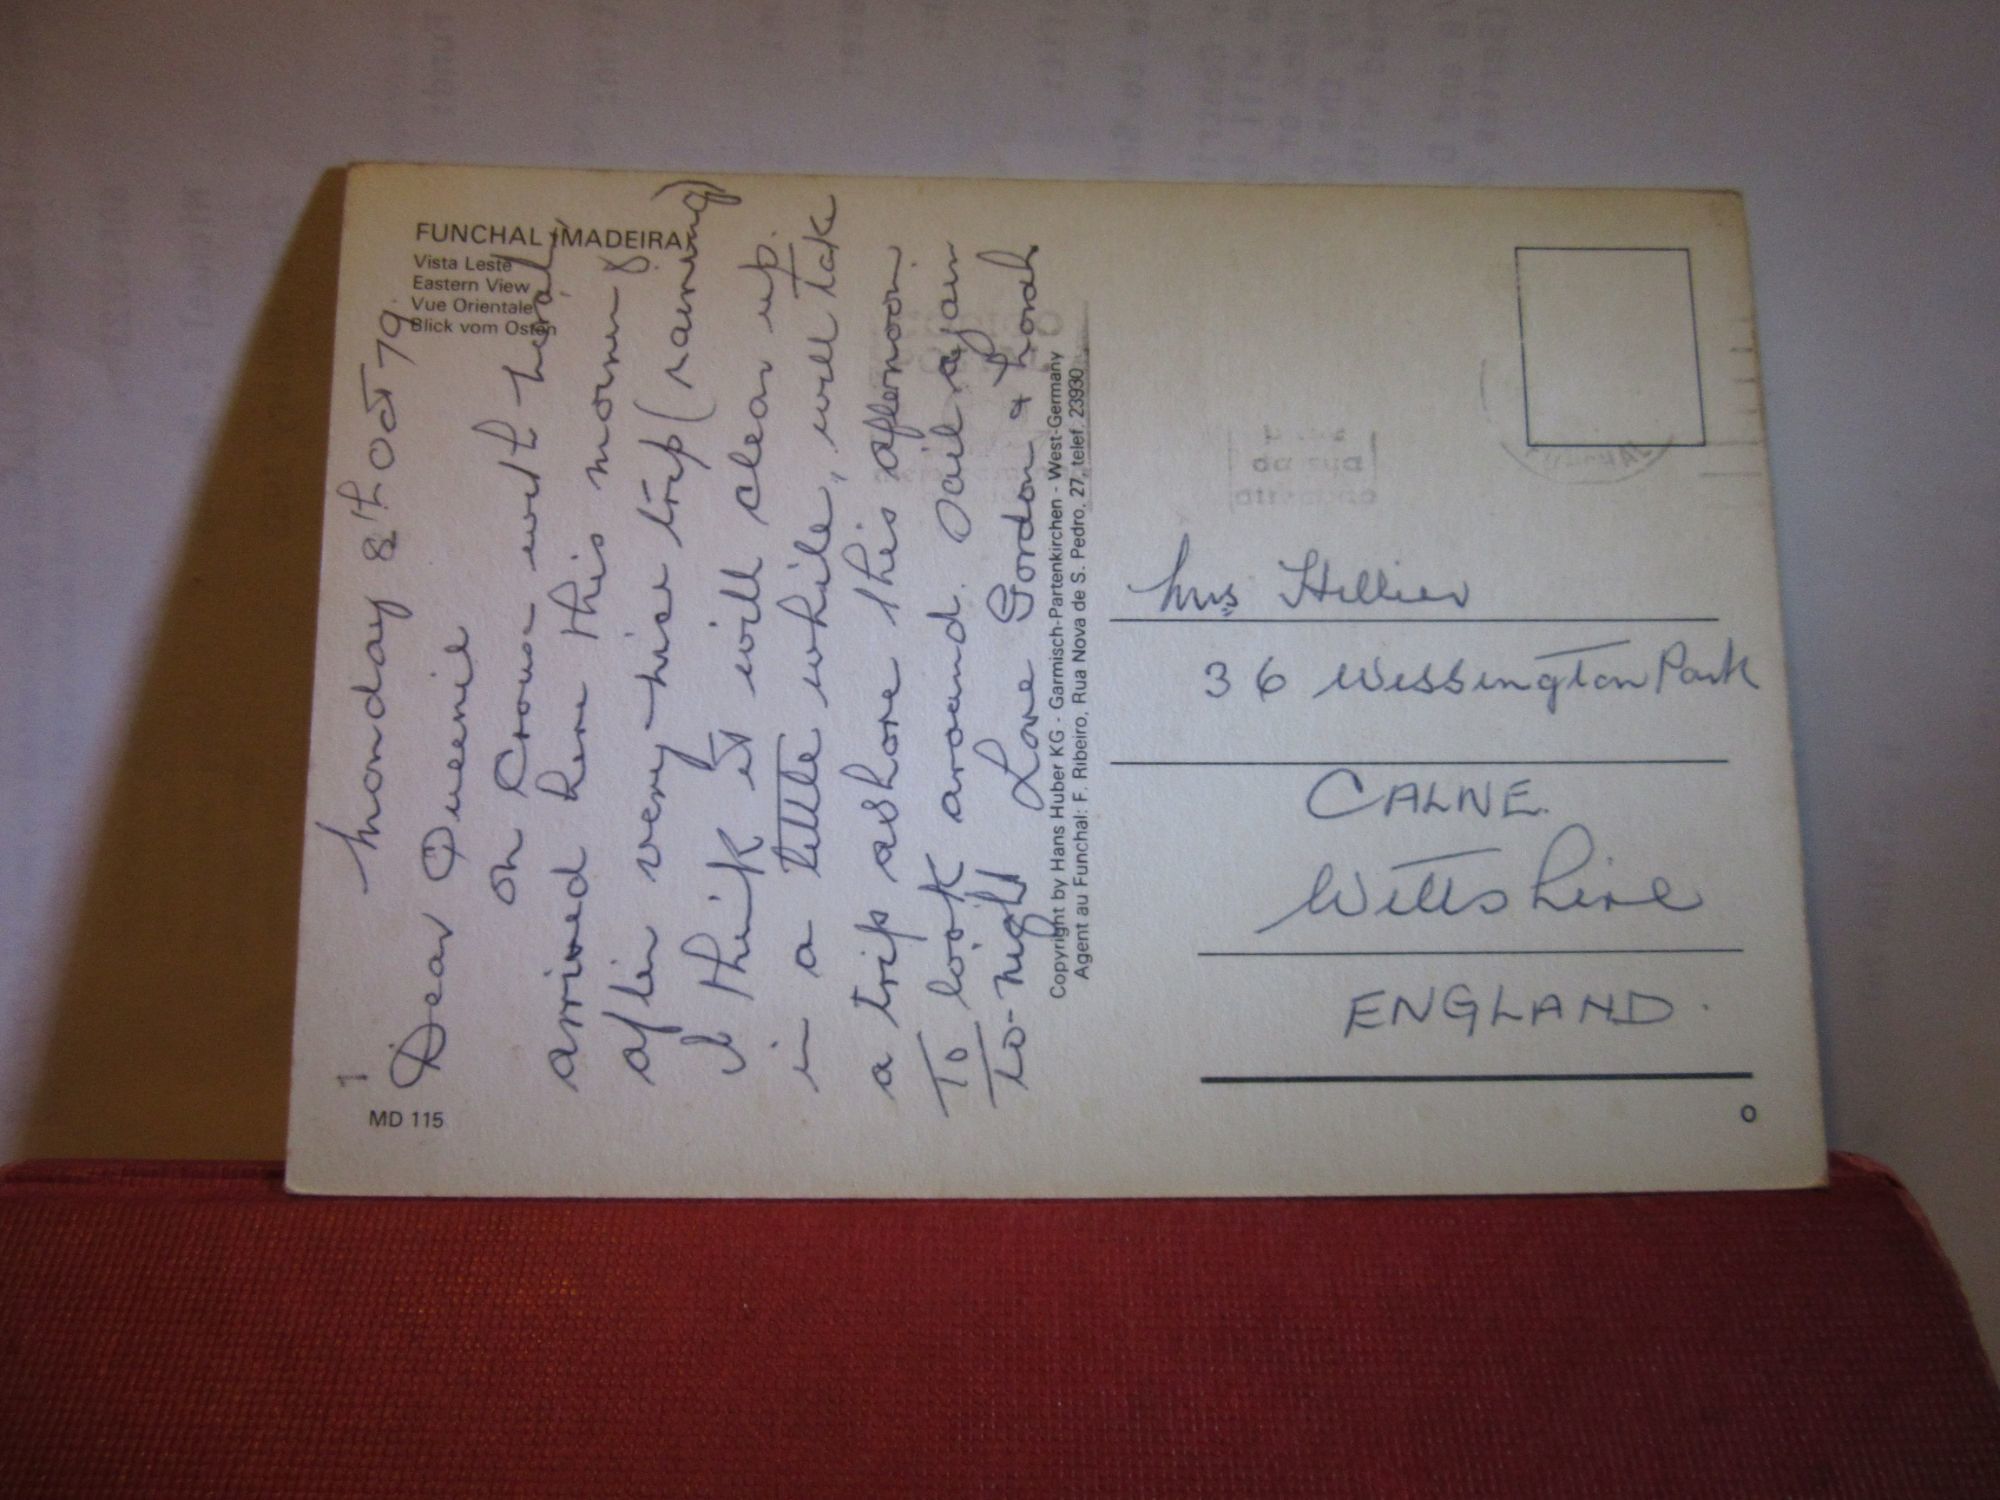 FUNCHAL (MADEIRA)
Vista Leste
Eastern View
Vue Orientale
Blick vom Osten
MD 115
1
Monday 8th Oct 79.
Dear Queenie
on Cruise with
arrived here this morning
after very nice trip (raining)
I think it will clear up.
in a little while, will take
a trip ashore this afternoon
To look around. Sail again
to-night Love Gordon &
Copyright by Hans Huber KG - Garmisch-Partenkirchen - West-Germany
Agent au Funchal: F. Ribeiro, Rua Nova de S. Pedro, 27, telef. 23930
Mrs Hillier
36 Wessington Park
CALNE.
Wiltshire
ENGLAND.
O